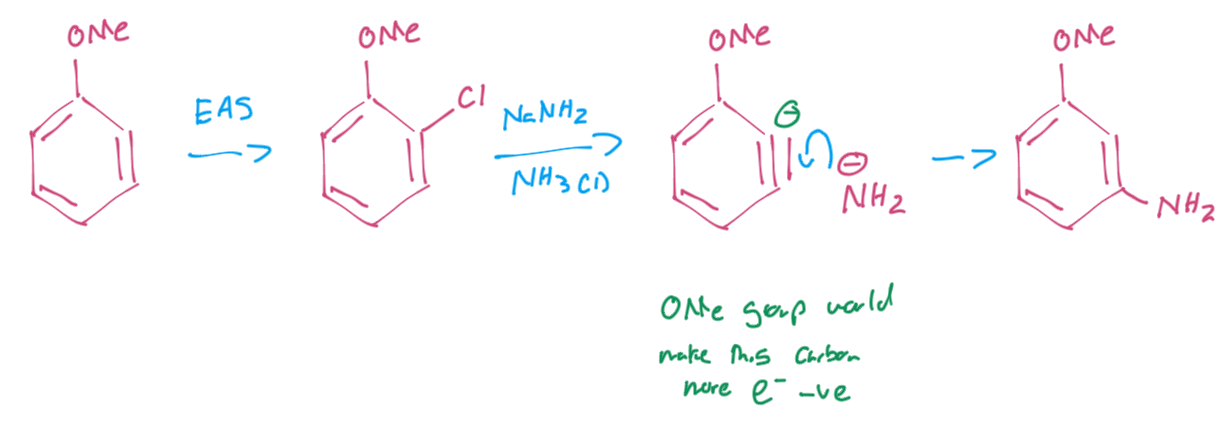 OMe
EAS
OMe
Cl
NaNH2
NH3 (l)
OMe
⊖
⊖
NH2
OMe
NH2
OMe group would
make this carbon
more e⁻ -ve